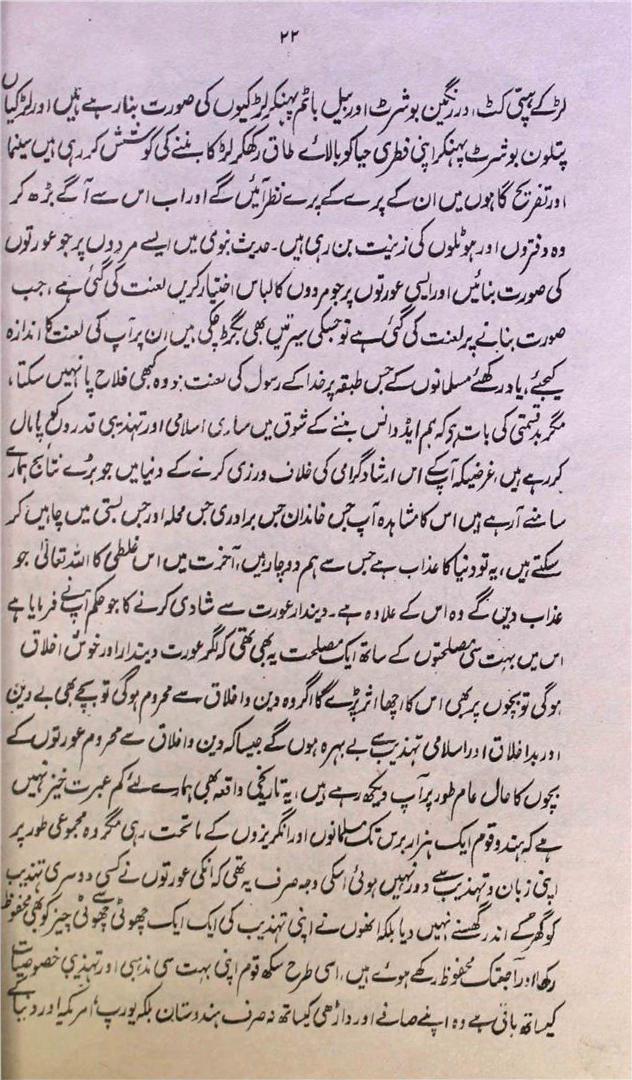 ۲۲
لڑکے ہپّی کٹ، اور رنگین بوشرٹ اور بیل باٹم پہنکر لڑکیوں کی صورت بنا رہے ہیں اور لڑکیاں
پتلون بوشرٹ پہنکر اپنی فطری حیا کو بالائے طاق رکھکر لڑکا بننے کی کوشش کر رہی ہیں سینما
اور تفریح گاہوں میں ان کے پرے کے پرے نظر آئیں گے اور اب اس سے آگے بڑھ کر
وہ دفتروں اور ہوٹلوں کی زینت بن رہی ہیں۔ حدیث نبوی میں ایسے مردوں پر جو عورتوں
کی صورت بنائیں اور ایسی عورتوں پر جو مردوں کا لباس اختیار کریں لعنت کی گئی ہے، جب
صورت بنانے پر لعنت کی گئی ہے تو جسکی سیرتیں بھی بگڑ چکی ہیں ان پر آپ کی لعنت کا اندازہ
کیجئے، یاد رکھئے مسلمانوں کے جس طبقہ پر خدا کے رسول کی لعنت ہو وہ کبھی فلاح پا نہیں سکتا،
مگر بدقسمتی کی بات ہے کہ ہم ایڈوانس بننے کے شوق میں ساری اسلامی اور تہذیبی قدروں کو پامال
کر رہے ہیں، غرضیکہ آپکے اس ارشاد گرامی کی خلاف ورزی کرنے کے دنیا میں جو برے نتائج ہمارے
سامنے آرہے ہیں اس کا مشاہدہ آپ جس خاندان جس برادری جس محلہ اور جس بستی میں چاہیں کر
سکتے ہیں، یہ تو دنیا کا عذاب ہے جس سے ہم دوچار ہیں، آخرت میں اس غلطی کا اللہ تعالیٰ جو
عذاب دیں گے وہ اس کے علاوہ ہے۔ دیندار عورت سے شادی کرنے کا جو حکم آپنے فرمایا ہے
اس میں بہت سی مصلحتوں کے ساتھ ایک مصلحت یہ بھی تھی کہ اگر عورت دیندار اور خوش اخلاق
ہوگی تو بچوں پر بھی اس کا اچھا اثر پڑے گا اگر وہ دین و اخلاق سے محروم ہوگی تو بچے بھی بے دین
اور بداخلاق اور اسلامی تہذیب سے بے بہرہ ہوں گے جیسا کہ دین و اخلاق سے محروم عورتوں کے
بچوں کا حال عام طور پر آپ دیکھ رہے ہیں، یہ تاریخی واقعہ بھی ہمارے لئے کم عبرت خیز نہیں
ہے کہ ہندو قوم ایک ہزار برس تک مسلمانوں اور انگریزوں کے ماتحت رہی مگر وہ مجموعی طور پر
اپنی زبان و تہذیب سے دور نہیں ہوئی اسکی وجہ صرف یہ تھی کہ انکی عورتوں نے کسی دوسری تہذیب
کو گھر کے اندر گھسنے نہیں دیا بلکہ انھوں نے اپنی تہذیب کی ایک ایک چھوٹی سے چھوٹی چیز کو بھی محفوظ
رکھا اور آجتک محفوظ رکھے ہوئے ہیں، اسی طرح سکھ قوم اپنی بہت سی مذہبی اور تہذیبی خصوصیات
کیساتھ باقی ہے وہ اپنے صافے اور داڑھی کیساتھ نہ صرف ہندوستان بلکہ یورپ، امریکہ اور دنیا کے